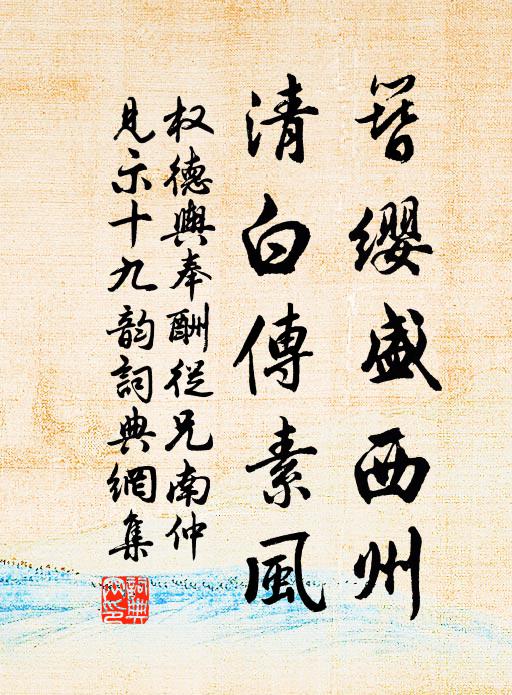 簪纓盛西州
清白傳素風
权德輿奉酬從兄南仲
見示十九韵詞典網集